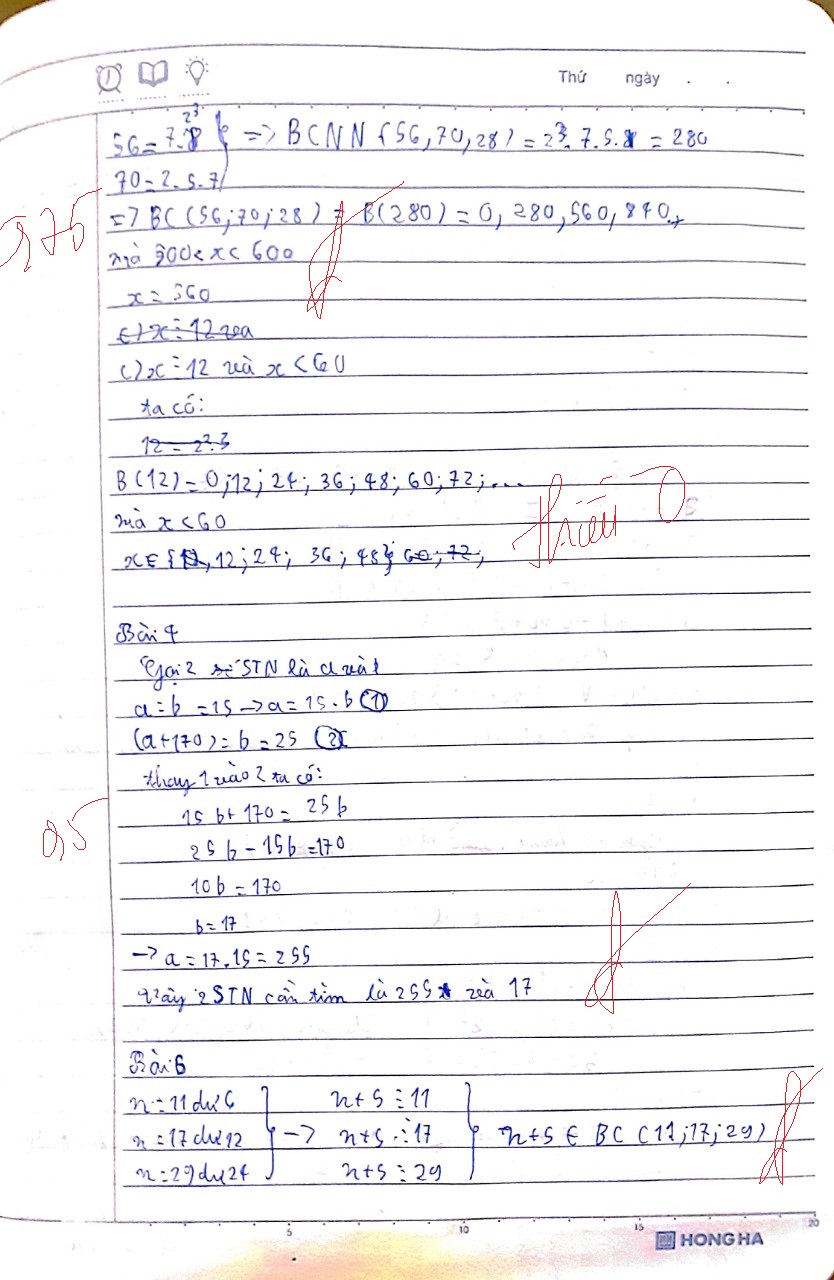 Thứ ngày . .
56 = 7.2³ } => BCNN (56,70,28) = 2³.7.5 = 280
70 = 2.5.7
2,75
=> BC (56;70;28) = B(280) = 0, 280, 560, 840..
mà 500 < x < 600
x = 560
c) x ⋮ 12 và
c) x ⋮ 12 và x < 60
ta có:
12 = 2².3
B(12) = 0;12; 24; 36; 48; 60; 72; ...
mà x < 60
thiếu 0
x ∈ {12; 24; 36; 48} 60; 72;
Bài 4
Gọi 2 số STN là a và b
a : b = 15 -> a = 15.b (1)
(a+170) : b = 25 (2)
thay 1 vào 2 ta có:
15b + 170 = 25b
0,5
25b - 15b = 170
10b = 170
b = 17
-> a = 17.15 = 255
Vậy 2 STN cần tìm là 255 và 17
Bài 6
n : 11 dư 6 } n+5 ⋮ 11 }
n : 17 dư 12 } -> n+5 ⋮ 17 } n+5 ∈ BC (11;17;29)
n : 29 dư 24 } n+5 ⋮ 29 }
5 10 15 20
HONG HA